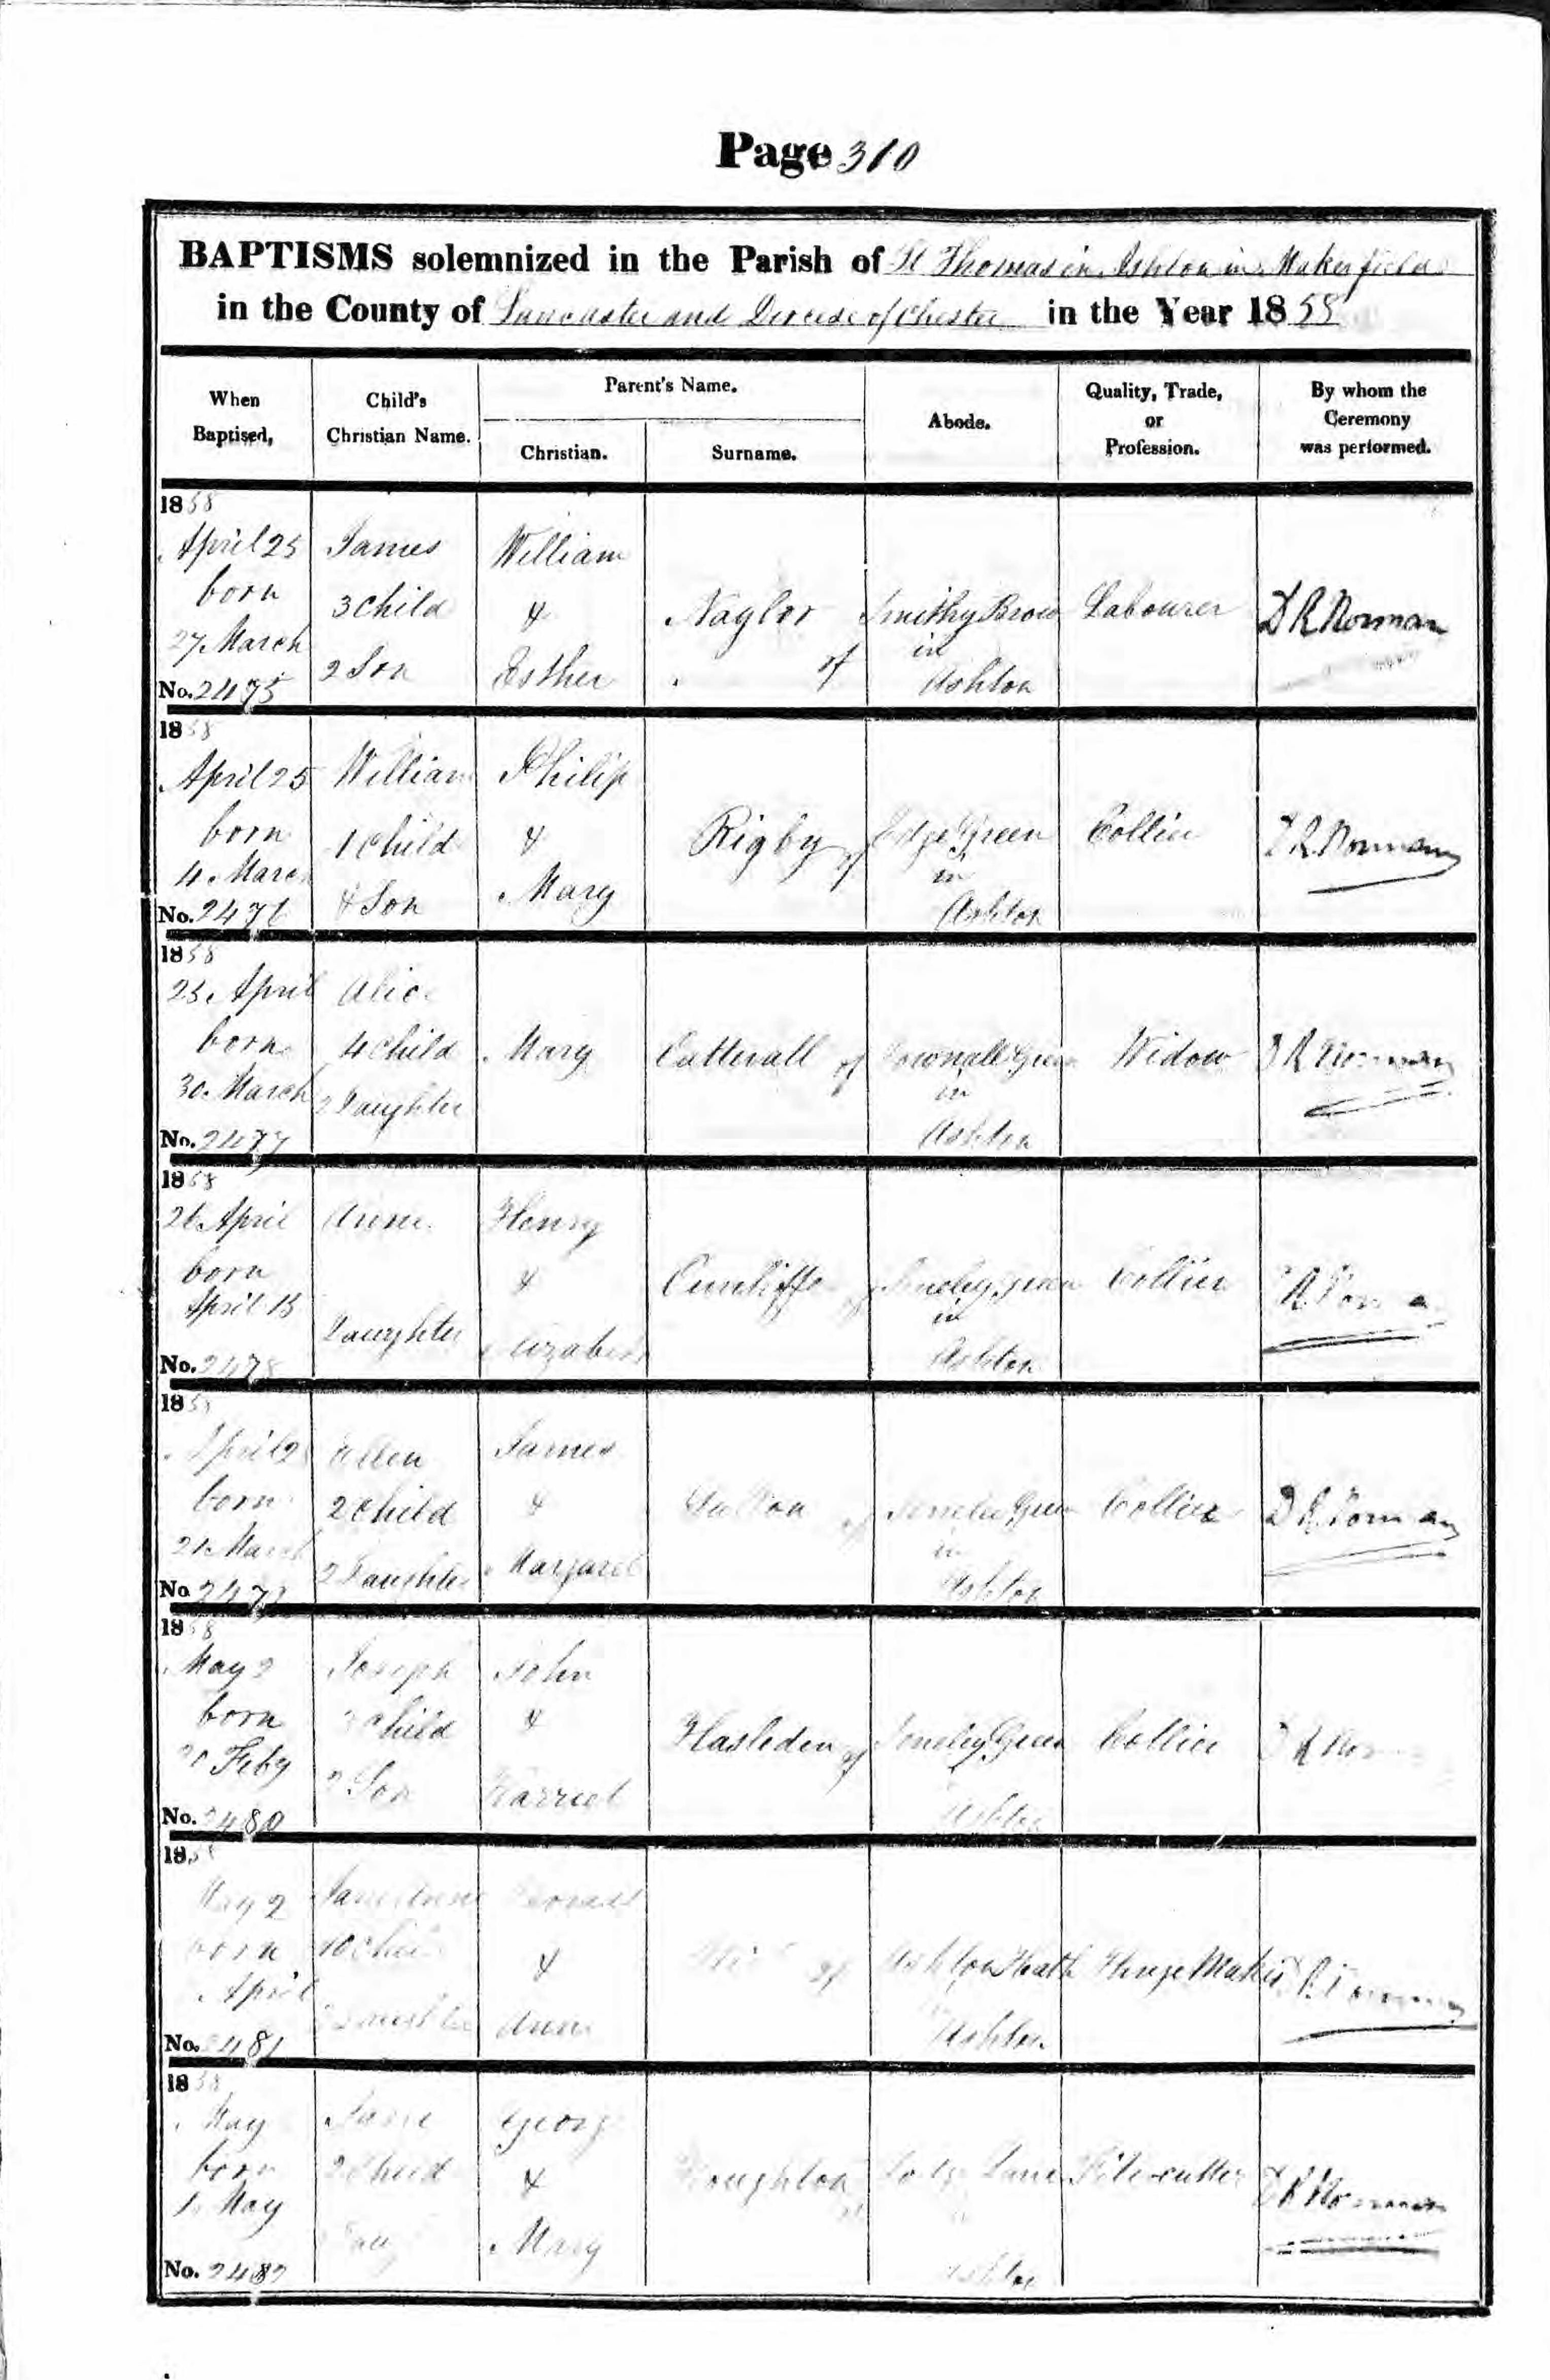 Page 310
BAPTISMS solemnized in the Parish of St Thomas in Ashton in Makerfield
in the County of Lancaster and Diocese of Chester in the Year 1858
When Baptised,
Child's Christian Name.
Parent's Name.
Christian.
Surname.
Abode.
Quality, Trade, or Profession.
By whom the Ceremony was performed.
1858
April 25 James William
born 3 Child & Naylor Smithy Brow Labourer D R Norman
27 March in
2 Son Esther of Ashton
No. 2475
1858
April 25 William Philip
born 1 Child & Rigby of Edge Green Collier D R Norman
4 March in
& Son Mary Ashton
No. 2476
1858
25 April Alice
born 4 Child Mary Catterall of Downall Green Widow D R Norman
30 March 2 Daughter in
Ashton
No. 2477
1858
April Anne Henry
born & Cunliffe of Simeley green Collier
April 15 in
Daughter Elizabeth Ashton
No. 2478
1858
April Ellen James
born 2 Child & of Green Collier D R Norman
21 March in
2 Daughter Margaret Ashton
No. 2479
1858
May 2 Joseph John
born 3 Child & Hasleden of Green Collier D R
Feby 2 Son Harriet
Ashton
No. 2480
1858
May 2 Jane Anne
born 10 Child & of Ashton Heath Hinge Maker
April
Daughter Ann Ashton
No. 2481
1858
May Jane George
born 2 Child & Houghton Lane File cutter D R Norman
1 May
Mary Ashton
No. 2482